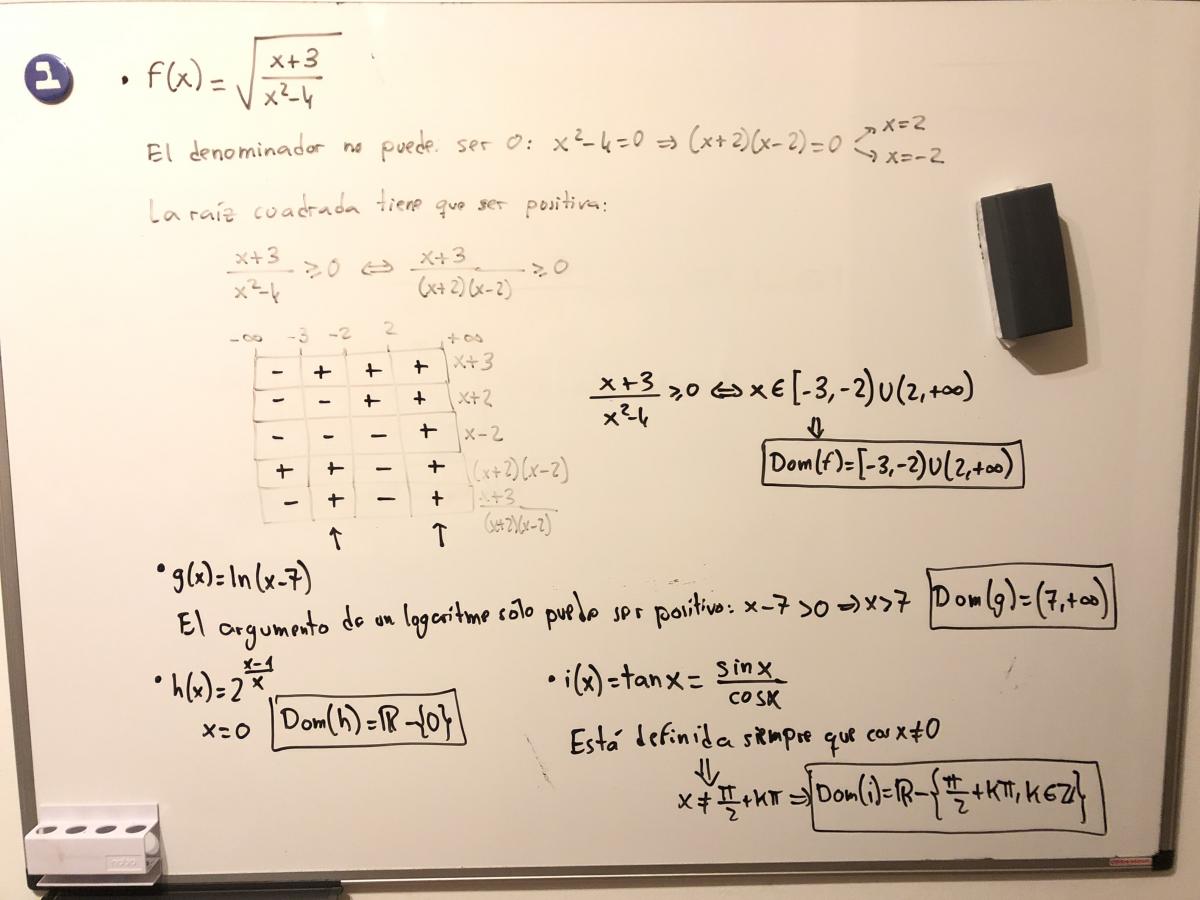 1
• f(x) = √((x+3)/(x²-4))
El denominador no puede ser 0: x²-4=0 ⇒ (x+2)(x-2)=0 ↗ x=2 ↘ x=-2
La raíz cuadrada tiene que ser positiva:
(x+3)/(x²-4) ⩾ 0 ⇔ (x+3)/((x+2)(x-2)) ⩾ 0
-∞ -3 -2 2 +∞
- + + + x+3
- - + + x+2
- - - + x-2
+ + - + (x+2)(x-2)
- + - + (x+3)/((x+2)(x-2))
↑ ↑
(x+3)/(x²-4) ⩾ 0 ⇔ x ∈ [-3,-2) ∪ (2,+∞)
⇓
Dom(f) = [-3,-2) ∪ (2,+∞)
• g(x) = ln(x-7)
El argumento de un logaritme sólo puede ser positivo: x-7 > 0 ⇒ x > 7 Dom(g) = (7,+∞)
• h(x) = 2^((x-1)/x)
x=0 Dom(h) = ℝ - {0}
• i(x) = tan x = sin x / cos x
Está definida siempre que cos x ≠ 0
⇓
x ≠ π/2 + kπ ⇒ Dom(i) = ℝ - {π/2 + kπ, k ∈ ℤ}
nobo